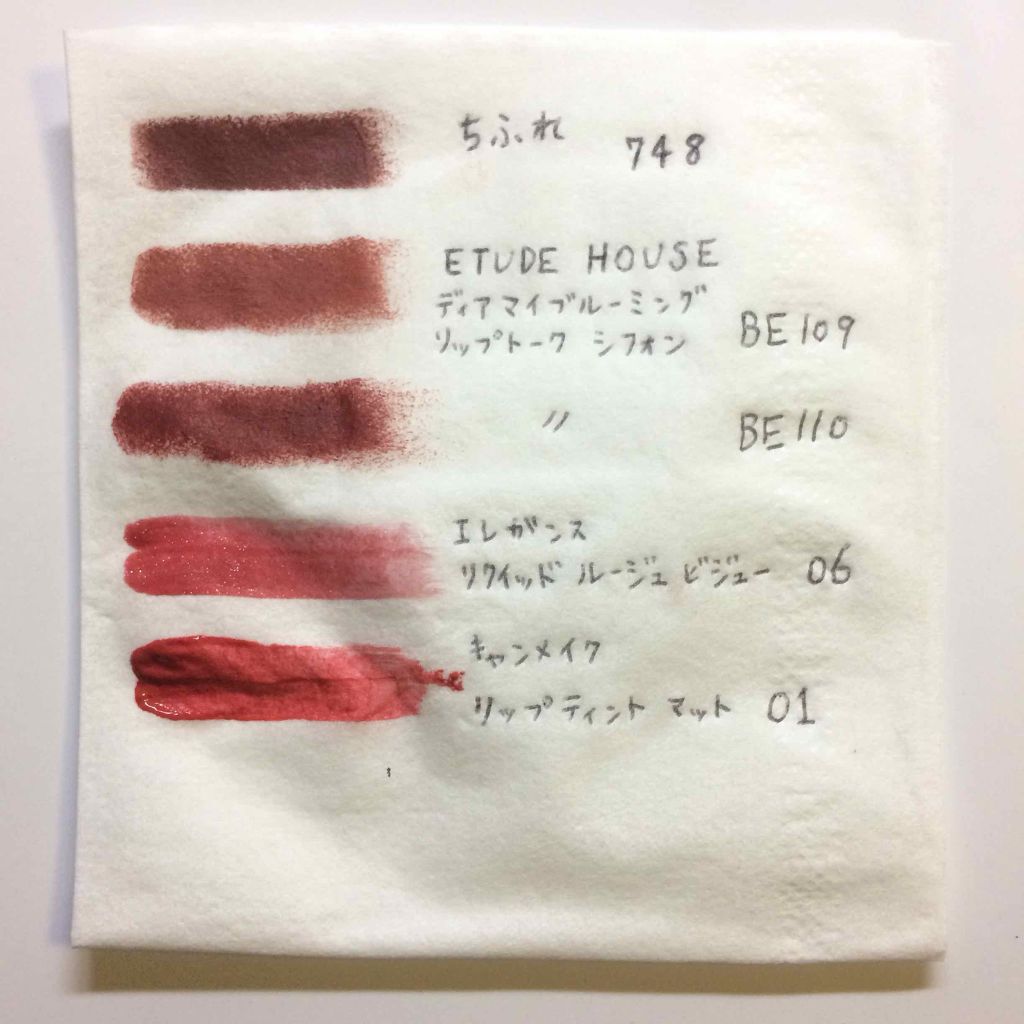 ちふれ 748
ETUDE HOUSE
ディアマイブルーミング
リップトーク シフォン BE109
〃 BE110
エレガンス
リクイッド ルージュ ビジュー 06
キャンメイク
リップティント マット 01